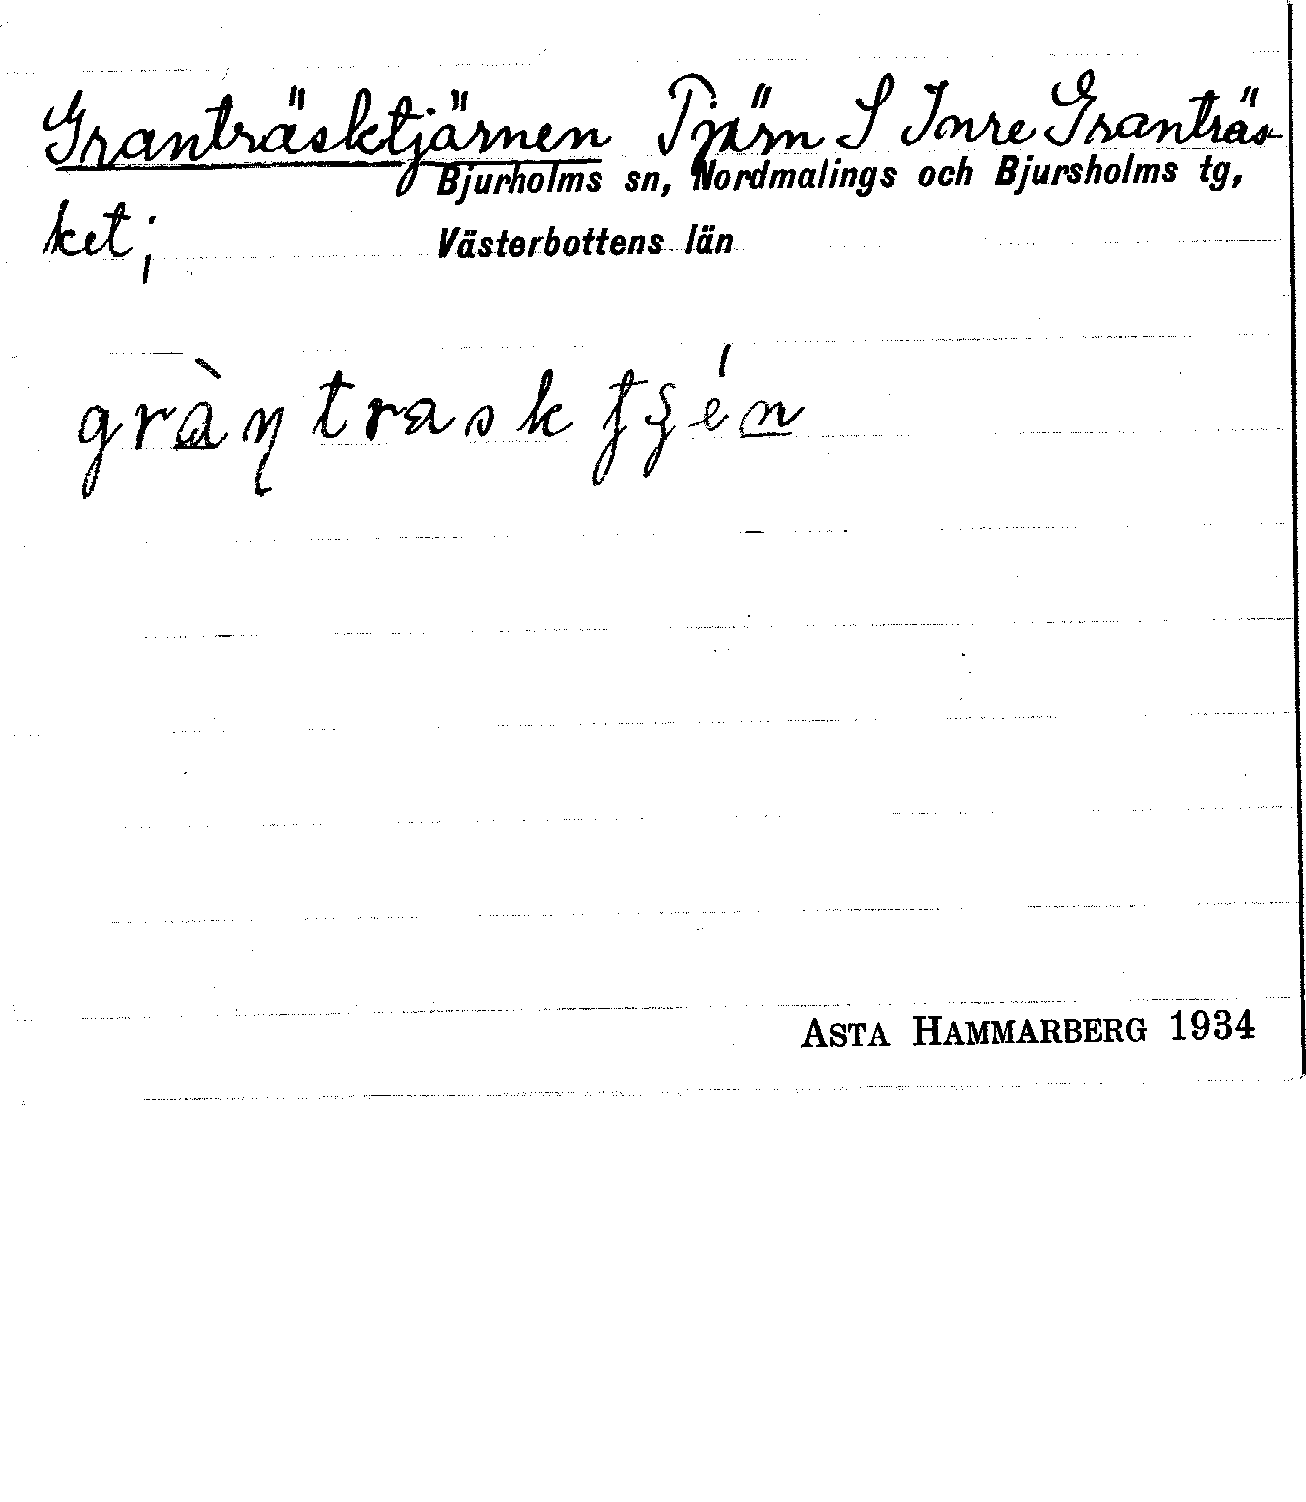 Granträsktjärnen Tjärn S Inre Granträs-
Bjurholms sn, Nordmalings och Bjursholms tg,
ket;
Västerbottens län
gràntrask tʂén
ASTA HAMMARBERG 1934